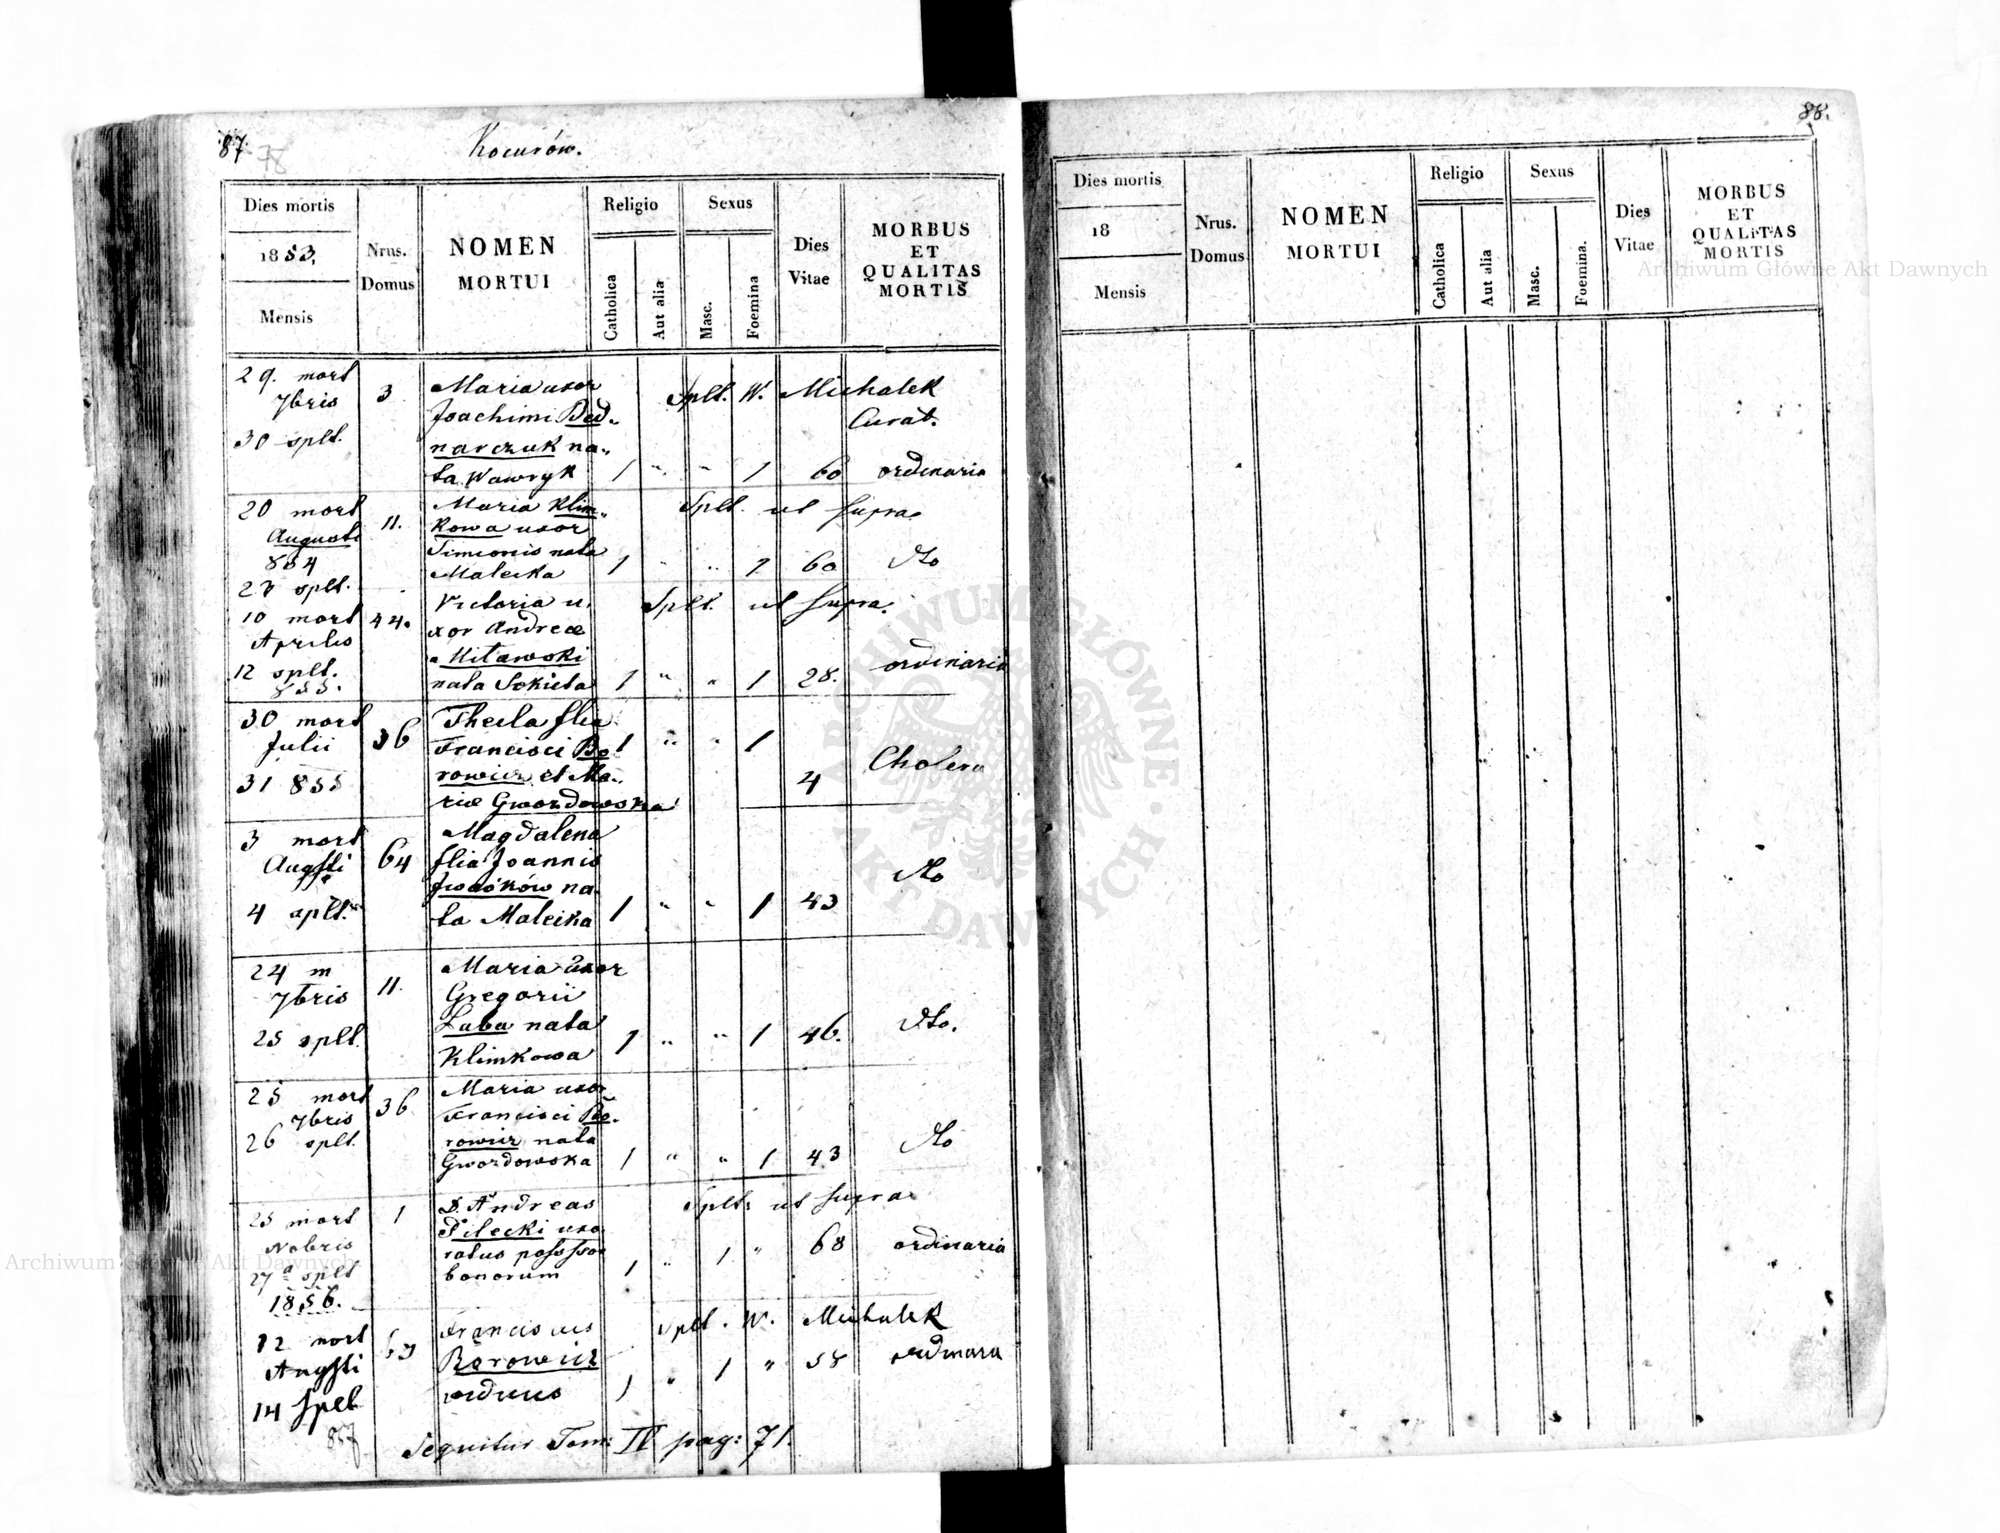 87
78
Kocurów.
Dies mortis
1853.
Mensis
Nrus.
Domus
NOMEN
MORTUI
Religio
Catholica
Aut alia
Sexus
Masc.
Foemina
Dies
Vitae
MORBUS
ET
QUALITAS
MORTIS
29. mort
7bris
30 splt.
3
Maria uxor
Joachimi Bed-
narczuk na-
ta Wawryk
Splt. W. Michalek
Curat.
1 " " 1 60 ordinaria
20 mort
Augusti
854
11.
Maria Klim-
kowa uxor
Simeonis nata
Malecka
Splt. ut supra
1 " " 1 60 dto
splt.
10 mort
Aprilis
12 splt.
855.
44.
Victoria u-
xor Andreae
Miławski
nata
Splt. ut supra.
1 " " 1 28. ordinaria
30 mort
Julii
31 855
36
Thecla filia
Francisci Bo-
rowicz et Ma-
riae Gwozdowska
1 " " 1
4
Cholera
3 mort
Augsti
4 splt.
64
Magdalena
filia Joannis
na-
ta Malecka
1 " " 1 43
dto
24 m
7bris
25 splt.
11.
Maria uxor
Gregorii
Łaba nata
Klimkowa
1 " " 1 46.
dto.
25 mort
7bris
26 splt.
36
Maria uxor
Francisci Bo-
rowicz nata
Gwozdowska
1 " " 1 43
dto
25 mort
Nobris
27a splt
1856.
1
D. Andreas
Pilecki uxo
ratus possssor
bonorum
Splt: ut supra
1 " 1 " 68 ordinaria
12 mort
Augsti
14 spel
857
Franciscus
Borowicz
viduus
splt. W. Michalek
1 " 1 " 58 ordinara
Sequitur Tom: IV pag: 71.
88.
Dies mortis
18
Mensis
Nrus.
Domus
NOMEN
MORTUI
Religio
Catholica
Aut alia
Sexus
Masc.
Foemina.
Dies
Vitae
MORBUS
ET
QUALITAS
MORTIS
Archiwum Główne Akt Dawnych
ARCHIWUM GŁÓWNE AKT DAWNYCH
Archiwum Główne Akt Dawnych